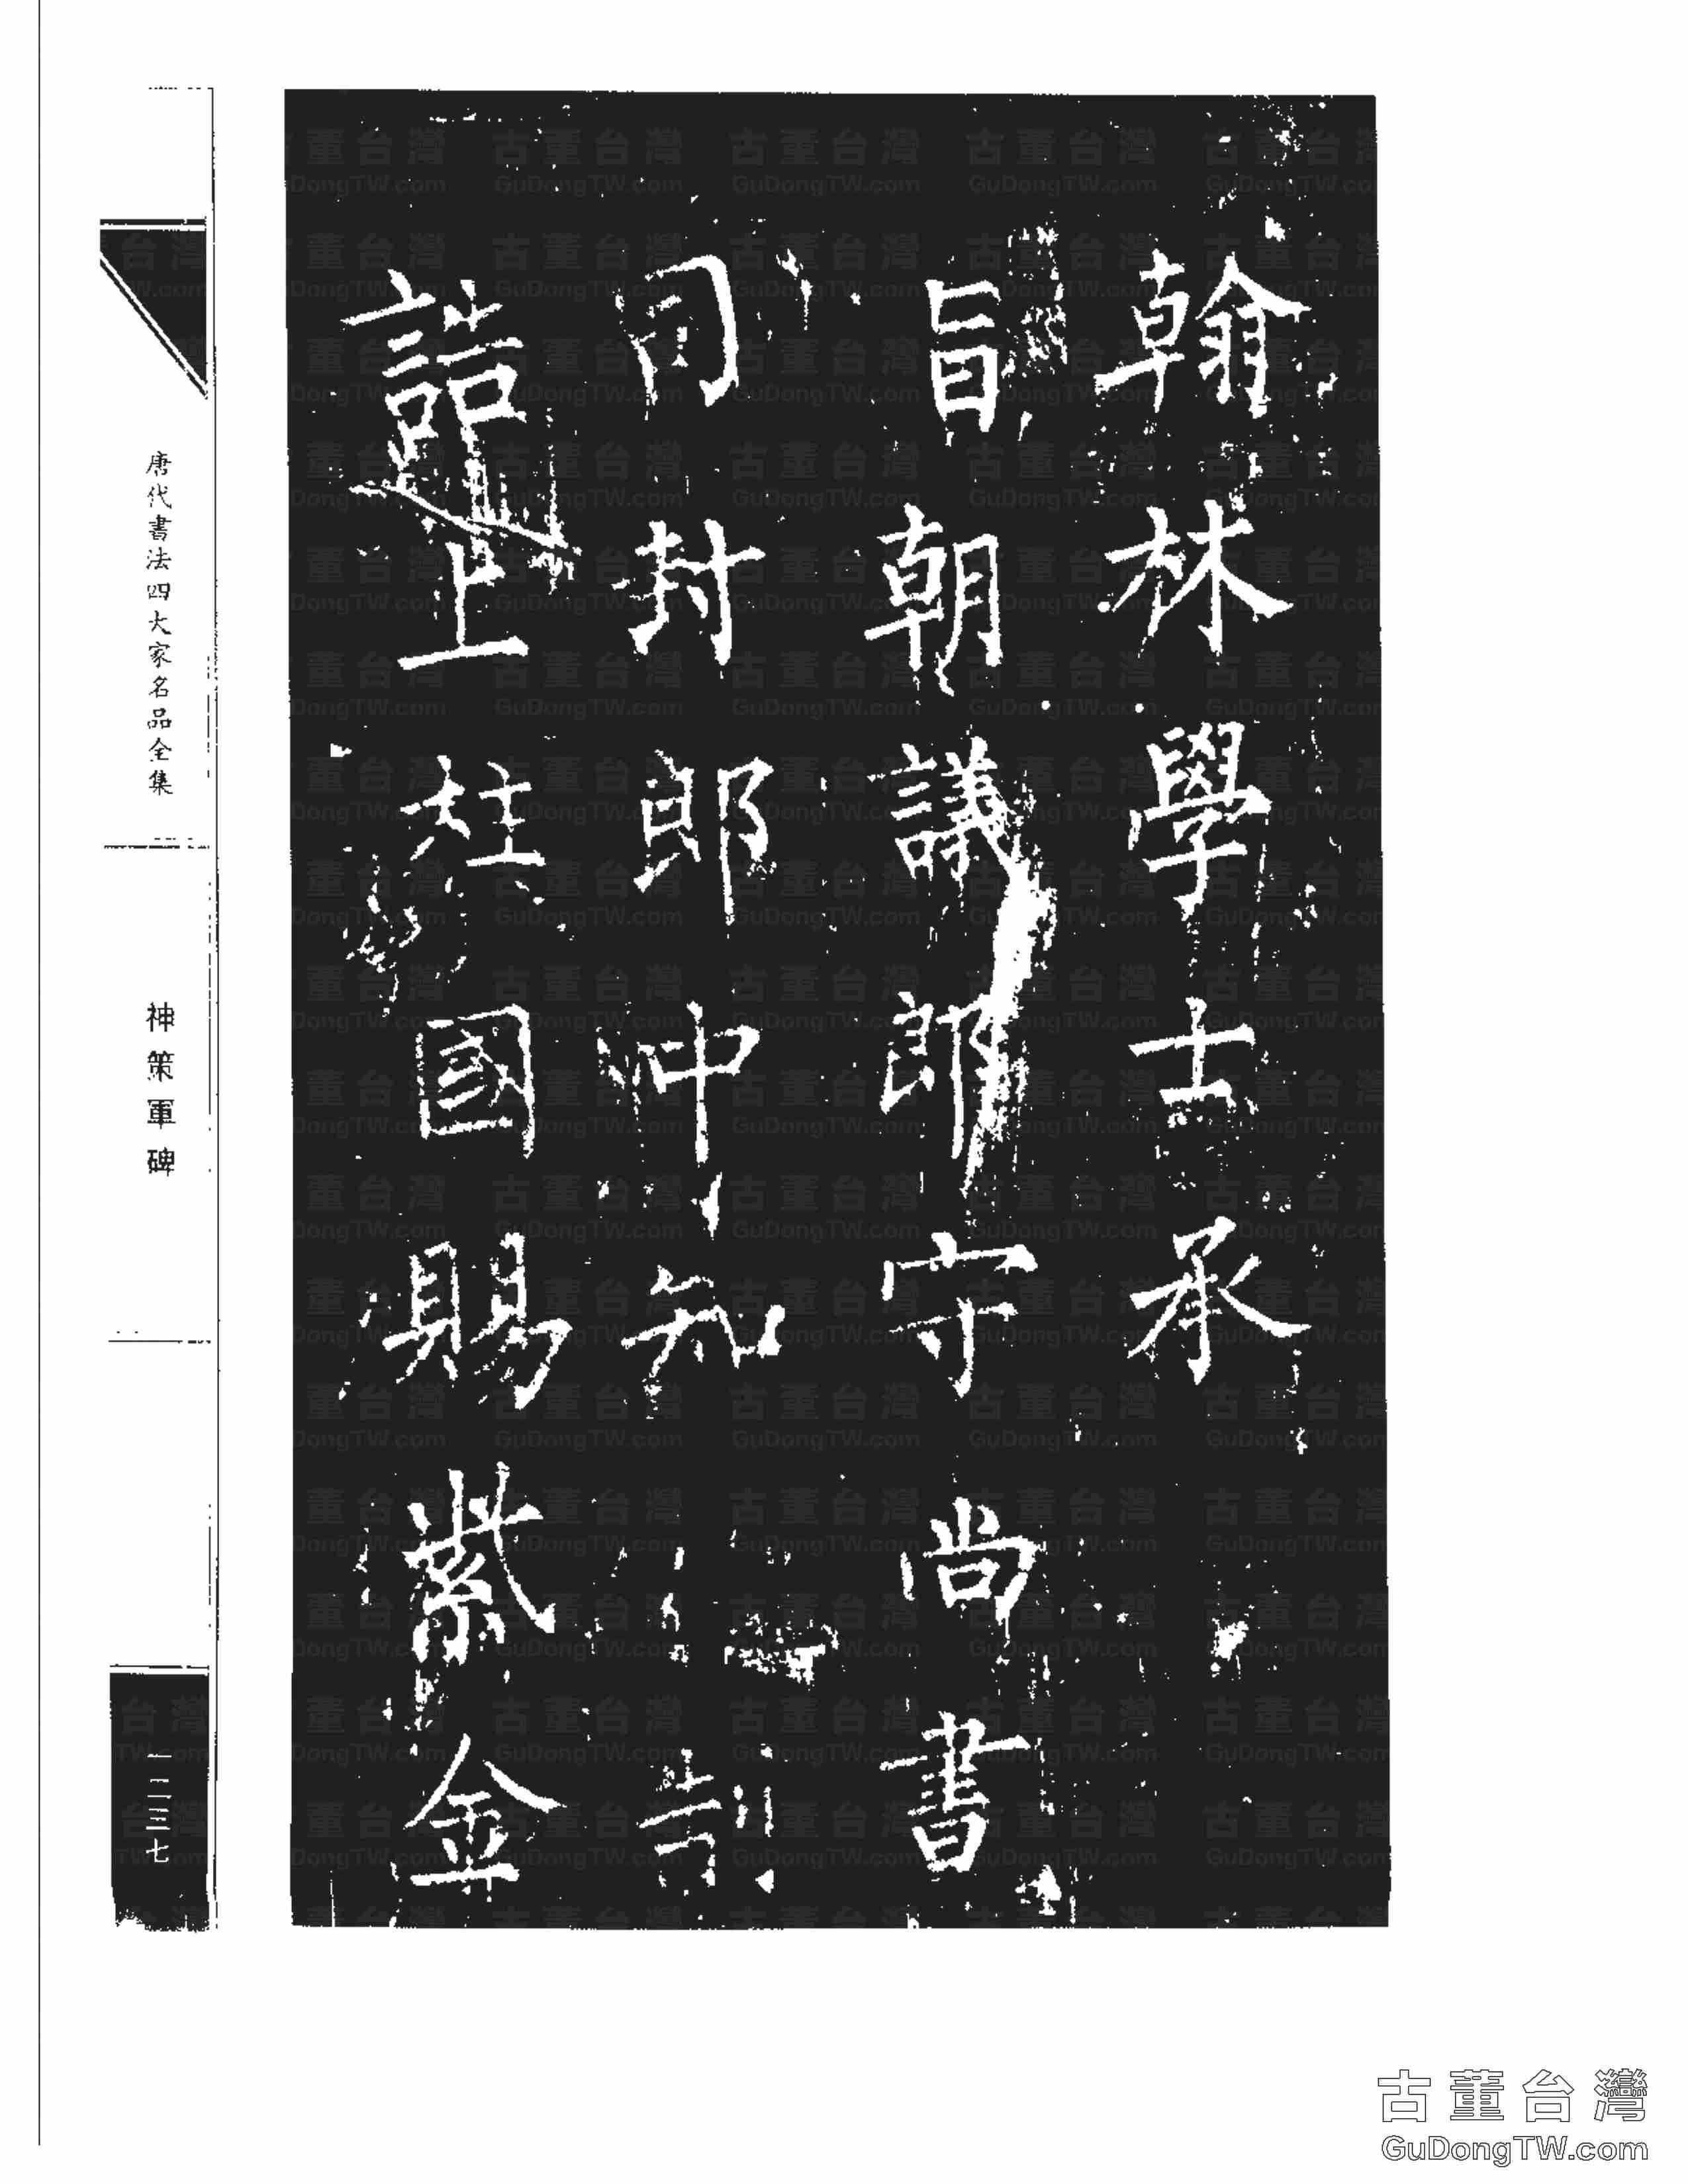 翰林學士承
旨朝議郎守尚書
司封郎中知制
誥上柱國賜紫金
唐代書法四大家名品全集
神策軍碑
一二三七
古董台灣
GuDongTW.com